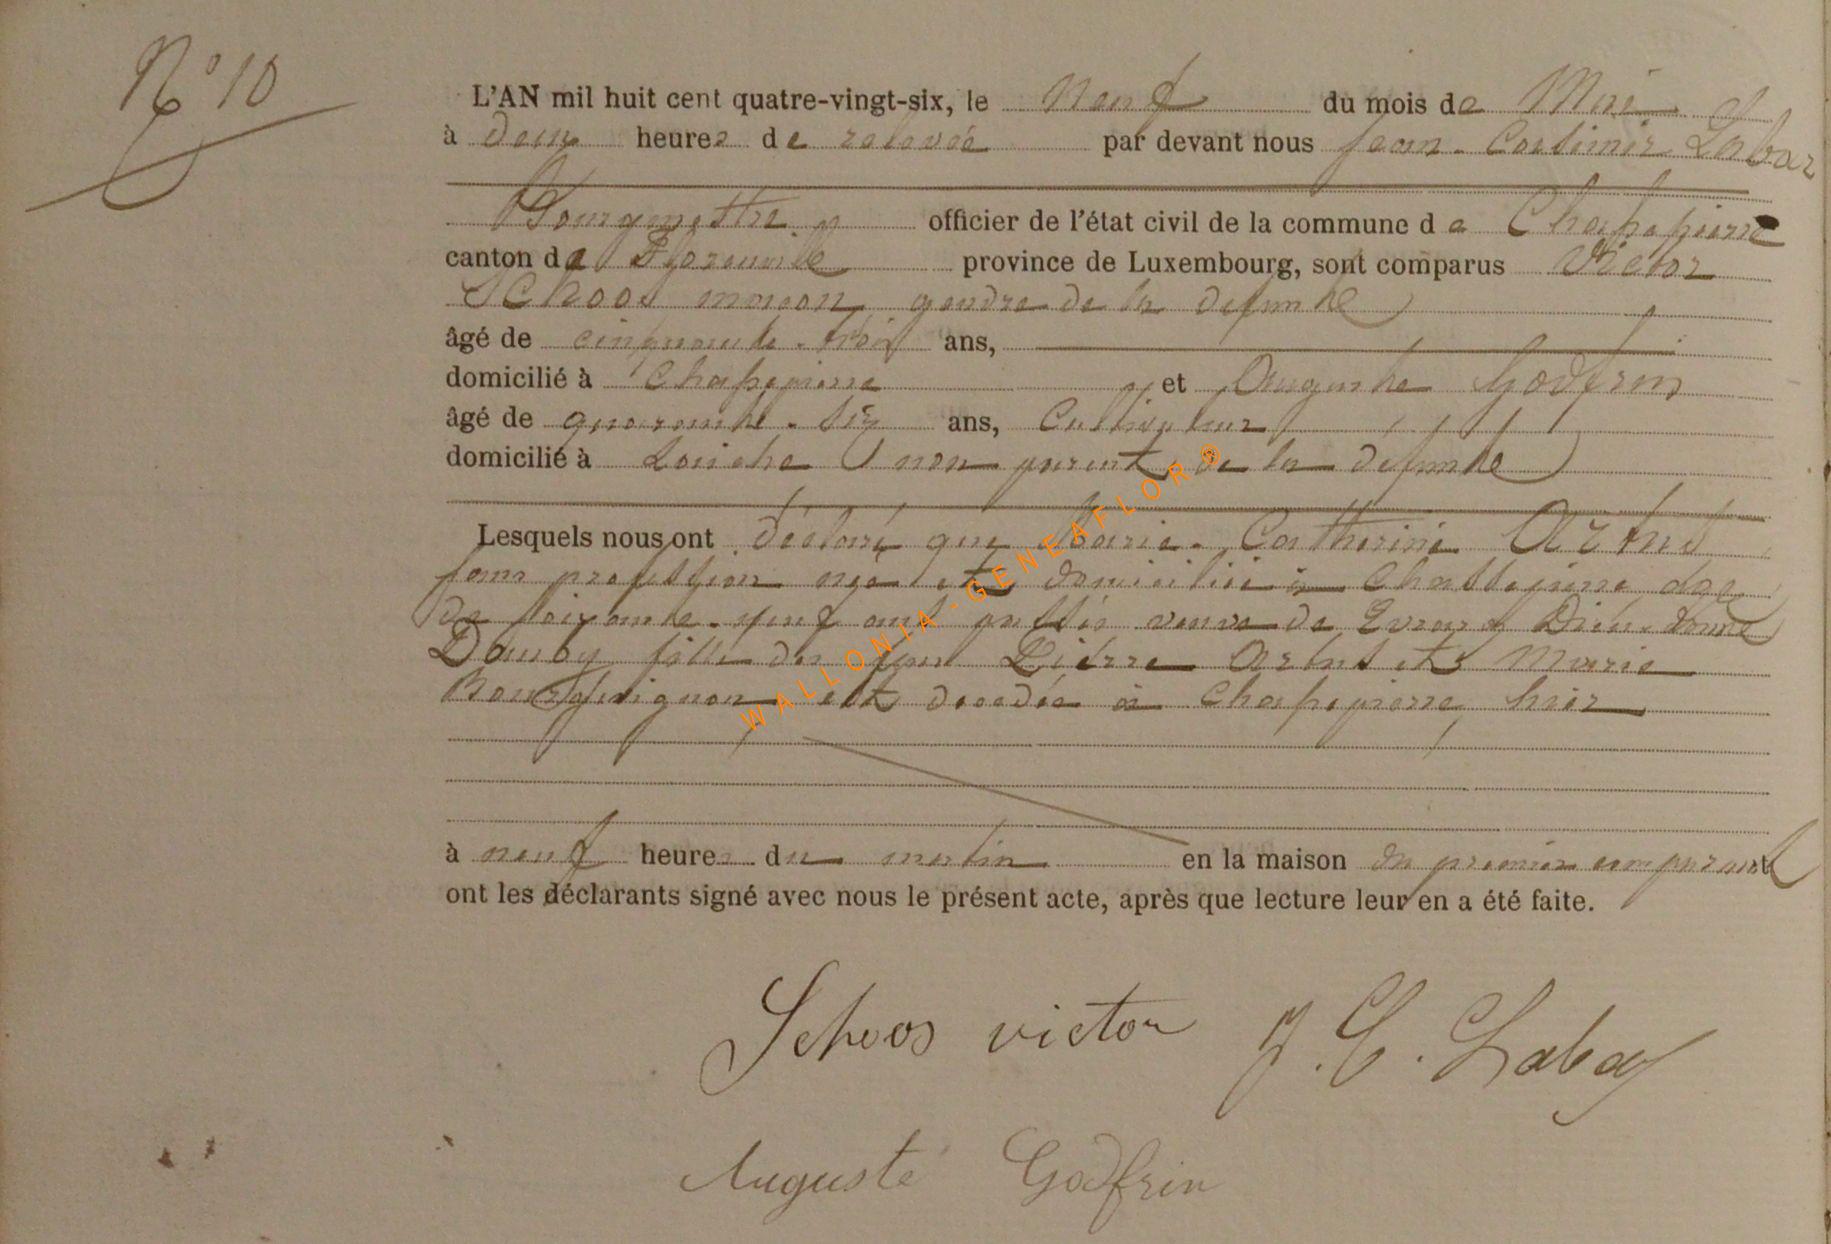 N° 10
L'AN mil huit cent quatre-vingt-six, le neuf du mois de Mai
à deux heures de relevée par devant nous Jean-Casimir Labar
Bourgmestre officier de l'état civil de la commune de Chassepierre
canton de Florenville province de Luxembourg, sont comparus Victor
Schoos maçon gendre de la defunte
âgé de cinquante-trois ans,
domicilié à Chassepierre et Auguste Godfrin
âgé de quarante-six ans, Cultivateur
domicilié à Laiche non parent de la défunte
Lesquels nous ont déclaré que Marie-Catherine Arnd
sans profession née et domiciliée à Chassepierre agée
de soixante-neuf ans passés veuve de Evrard Dieu-donné
Dauby fille des feus Pierre et Marie
Bourguignon est decedée à Chassepierre hier
à neuf heures du matin en la maison du premier comparant
ont les déclarants signé avec nous le présent acte, après que lecture leur en a été faite.
Schoos victor J. C. Labar
Auguste Godfrin
WALLONIA-GENEAFLOR®